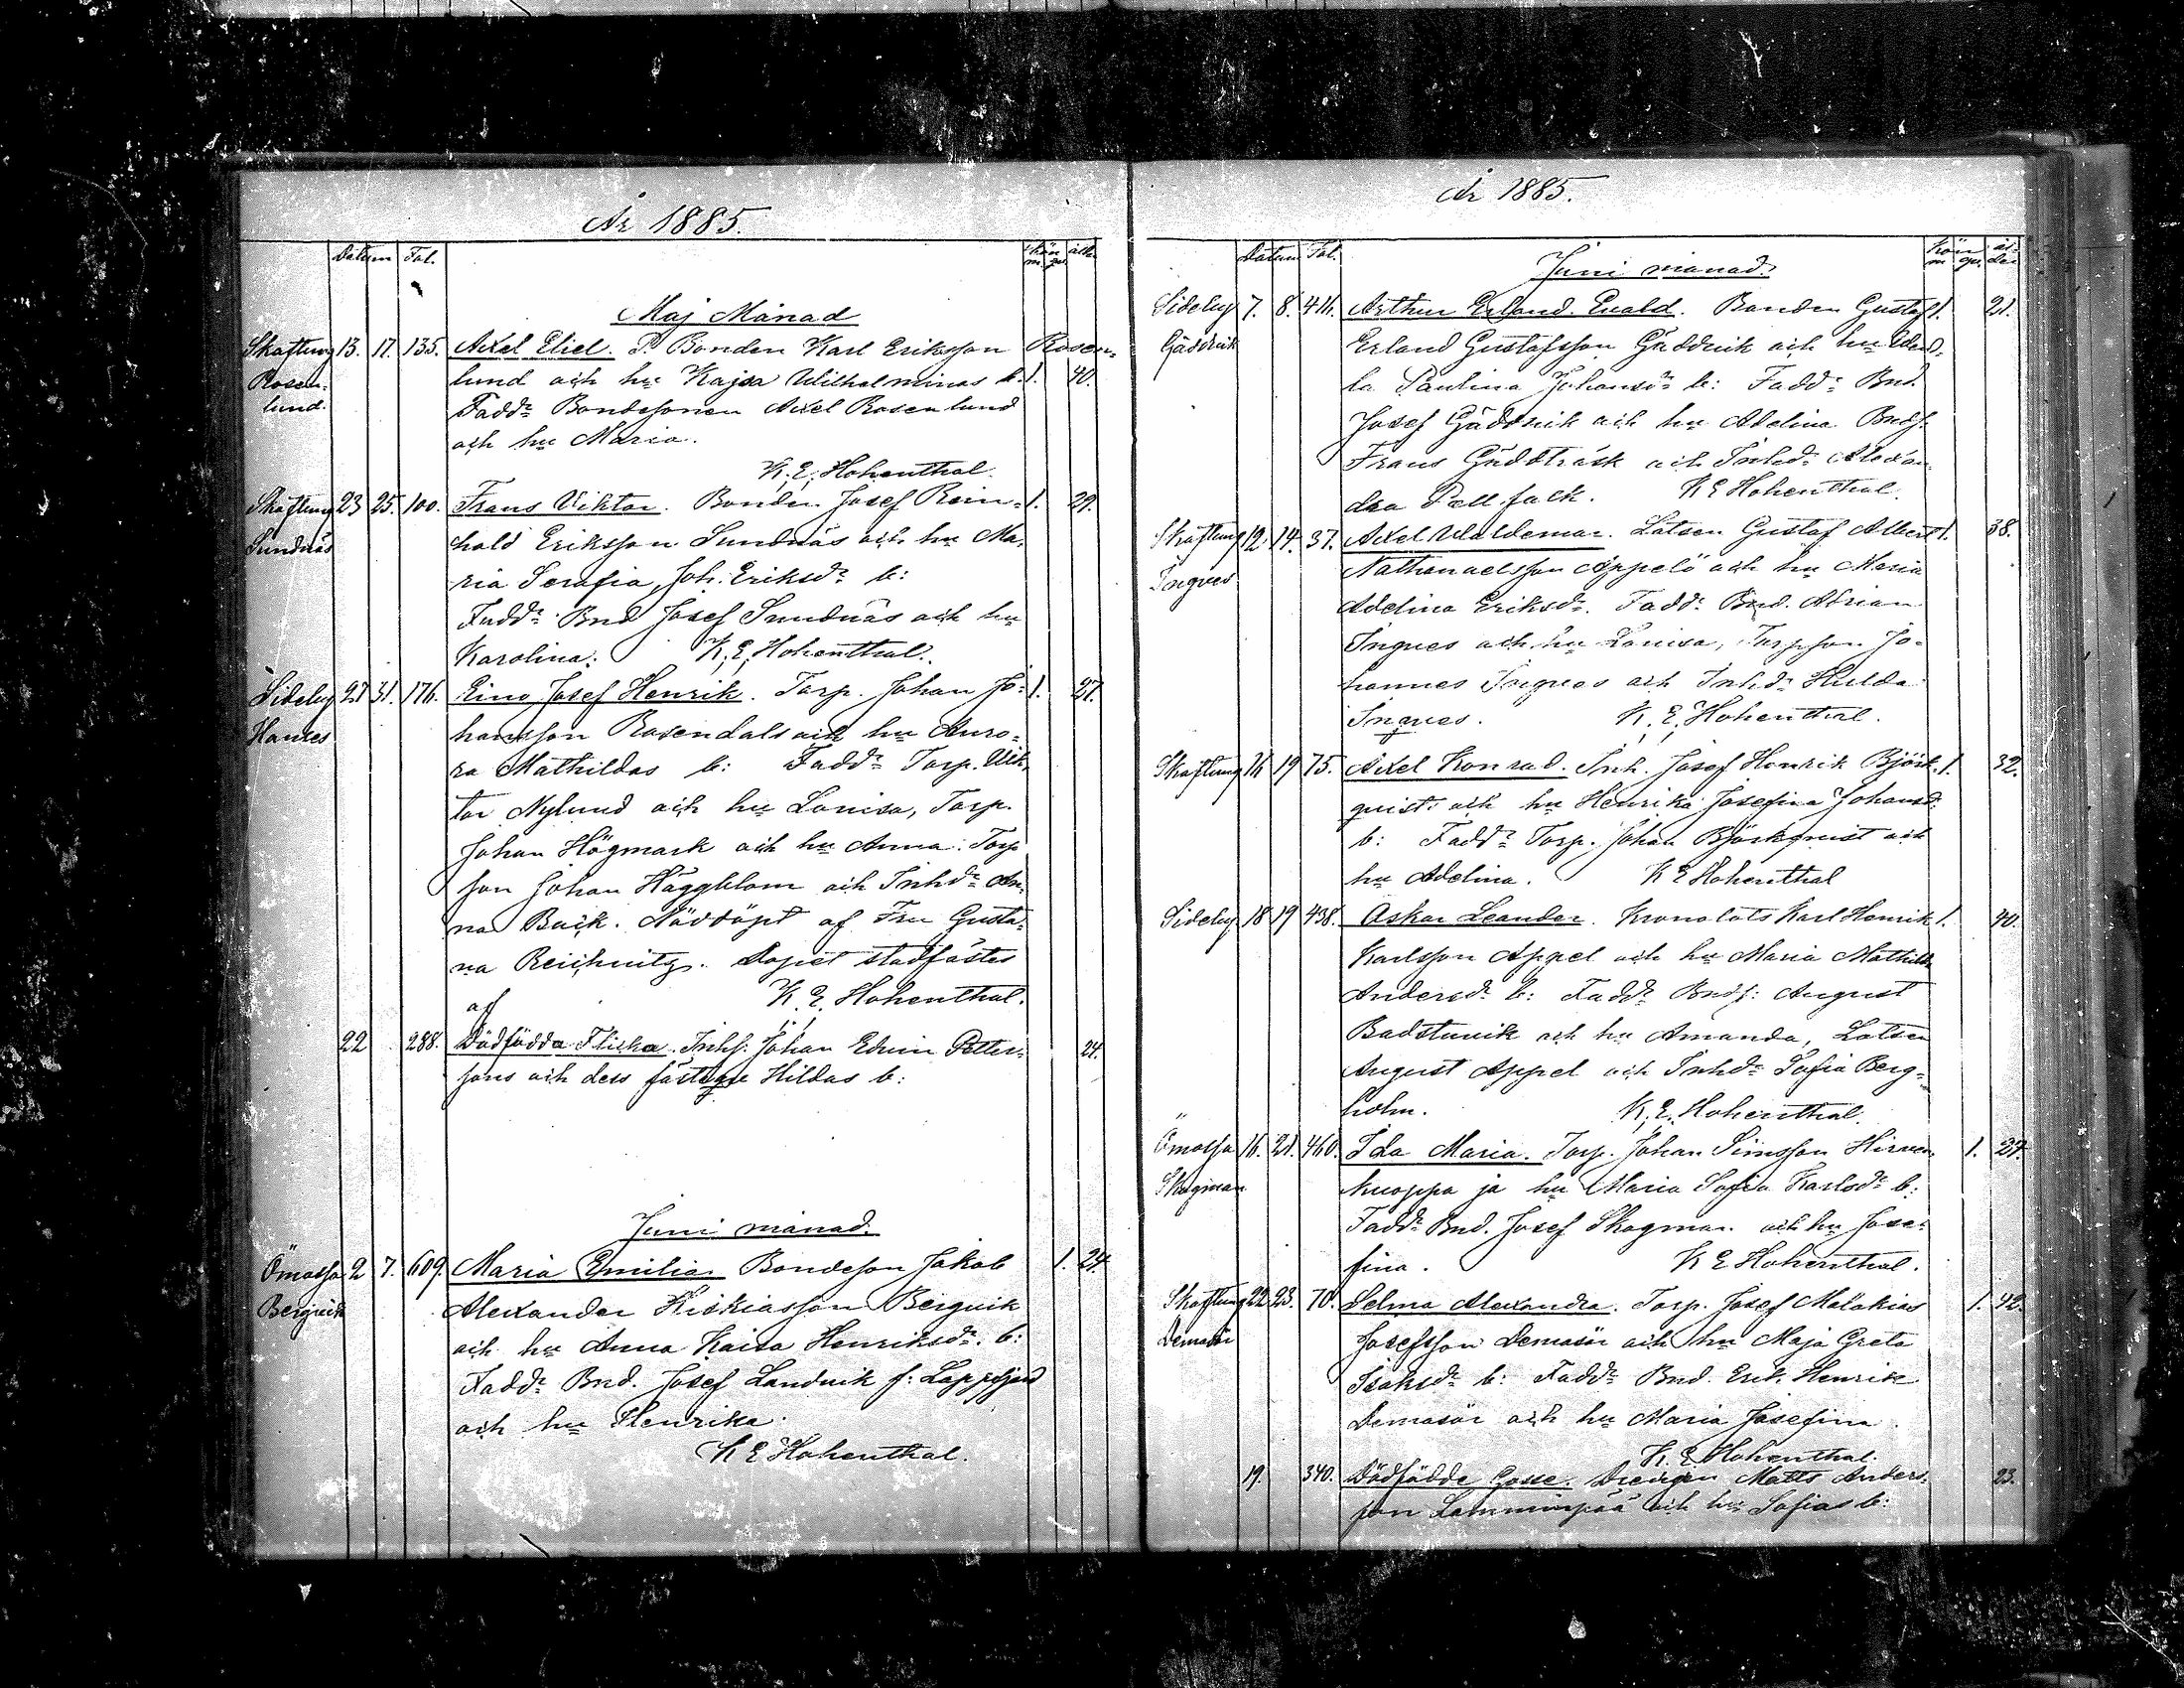 År 1885.
Datum Fol. kön ålder
m. qv.
Maj Månad
Skaftung 13. 17. 135. Axel Eliel. P. Bonden Karl Eriksson Rosen-
Rosen- lund och hu Kajsa Wilhelminas b. 1. 40.
lund. Faddr Bondesonen Axel Rosenlund
och hu Maria.
K. E. Hohenthal.
Skaftung 23 25. 100. Frans Viktor. Bonden Josef Rein- 1. 29.
Sundnäs hold Eriksson Sundnäs och hu Ma-
ria Serafia, Joh. Eriksdr b:
Faddr Bnd Josef Sundnäs och hu
Karolina. K. E. Hohenthal.
Sideby 27 31. 176. Eino Josef Henrik. Torp. Johan Jo- 1. 27.
Hanses hansson Rosendals och hu Auro-
ra Mathildas b: Faddr Torp. Vik-
tor Nylund och hu Lovisa, Torp.
Johan Högmark och hu Anna. Torp
son Johan Häggblom och Inhdr An-
na Back. Nöddöpt af Fru Gusta-
va Reichnitz. Dopet stadfästes
af K. E. Hohenthal.
22 288. Dödfödda Flicka. Inhs. Johan Edvin Petter- 24.
sons och dess fästeqv Hildas b:
Juni månad.
Ömossa 2 7. 609. Maria Emilia. Bondeson Jakob 1. 24.
Bergvik Alexander Hiskiasson Bergvik
och hu Anna Kaisa Henriksdr. b:
Faddr Bnd. Josef Landvik f: Lappfjärd
och hu Henrika.
K E Hohenthal.
År 1885.
Datum Fol. kön ål-
m. qv. der
Juni månad.
Sideby 7. 8. 411. Arthur Erland Evald. Bonden Gustaf 1. 21.
Gäddvik Erland Gustafsson Gäddvik och hu
la Paulina Johansdr b: Faddr Bnd.
Josef Gäddvik och hu Adelina Bnds.
Frans Gäddträsk och Inhdr Alexan-
dra Pellfolk. K E Hohenthal.
Skaftung 12. 14. 37. Axel Waldemar. Lotsen Gustaf Albert 1. 38.
Ingves Nathanaelsson Äppelö och hu Maria
Adelina Eriksdr. Faddr Bnd. Adrian
Ingves och hu Lovisa, Torpson Jo-
hannes Ingves och Inhdr Hulda
Ingves. K. E. Hohenthal.
Skaftung 16 19 75. Axel Konrad. Inh. Josef Henrik Björk- 1. 32.
quist och hu Henrika Josefina Johansd.
b: Faddr Torp. Johan Björkquist och
hu Adelina. K E Hohenthal
Sideby 18 19 438. Oskar Leander. Kronolots Karl Henrik 1. 40.
Karlsson Appel och hu Maria Mathilda
Andersdr b: Faddr Bnds: August
Badstuvik och hu Amanda, Lotsen
August Appel och Inhdr Sofia Berg-
holm. K. E. Hohenthal.
Ömossa 16. 21. 460. Ida Maria. Torp. Johan Simsson Hirven- 1. 27.
Skogman nuoppa ja hu Maria Sofia Karlsdr b:
Faddr Bnd. Josef Skogman och hu Jose-
fina. K E Hohenthal.
Skaftung 22 23. 70. Selma Alexandra. Torp. Josef Malakias 1. 42.
Demasör Josefsson Demasör och hu Maja Greta
Isaksdr b: Faddr Bnd. Erik Henrik
Demasör och hu Maria Josefina.
K. E. Hohenthal.
19. 340. Dödfödde Gosse. Drengen Matts Anders- 23.
son Lamminpää och hu Sofias b: